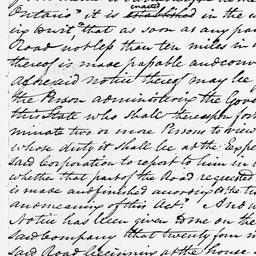 Ontario" it is enacted in the
in writ" that as soon as any par
Road not less than ten miles in
thereof is made passable and conv
aforesaid notice thereof may be
the Person administering the Gove
this State who shall thereupon forth
minate two or more Persons to view
whose duty it shall be at the Expe
said Corporation to report to him in w
whether that part of the Road requested
is made and finished according to the tr
and meaning of this Act." And w
Notice has been given some on the
said company that twenty four m
said Road beginning at the house